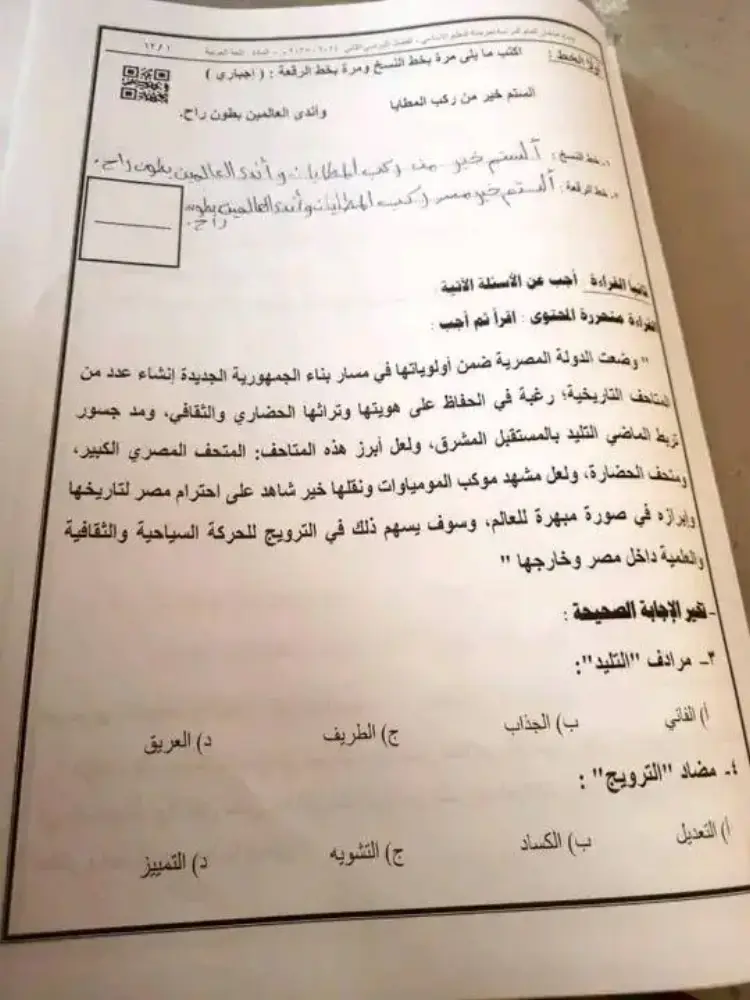 الفصل الدراسي الثاني ٢٠٢٤ - ٢٠٢٥ م - المادة: اللغة العربية
١٢/١
أولا الخط : اكتب ما يلى مرة بخط النسخ ومرة بخط الرقعة : ( إجباري )
الستم خير من ركب المطايا وأندى العالمين بطون راح.
١ـ خط النسخ : ألستم خير من ركب المطايا وأندى العالمين بطون راح.
٢ـ خط الرقعة : ألستم خير من ركب المطايا وأندى العالمين بطون
راح.
ثانيا القراءة أجب عن الأسئلة الآتية :
القراءة متحررة المحتوى : اقرأ ثم أجب :
" وضعت الدولة المصرية ضمن أولوياتها في مسار بناء الجمهورية الجديدة إنشاء عدد من
المتاحف التاريخية؛ رغبة في الحفاظ على هويتها وتراثها الحضاري والثقافي، ومد جسور
تربط الماضي التليد بالمستقبل المشرق، ولعل أبرز هذه المتاحف: المتحف المصري الكبير،
ومتحف الحضارة، ولعل مشهد موكب المومياوات ونقلها خير شاهد على احترام مصر لتاريخها
وإبرازه في صورة مبهرة للعالم، وسوف يسهم ذلك في الترويج للحركة السياحية والثقافية
والعلمية داخل مصر وخارجها "
- تخير الإجابة الصحيحة :
٣ـ مرادف "التليد":
أ) الفاني ب) الجذاب ج) الطريف د) العريق
٤ـ مضاد "الترويج" :
أ) التعديل ب) الكساد ج) التشويه د) التمييز